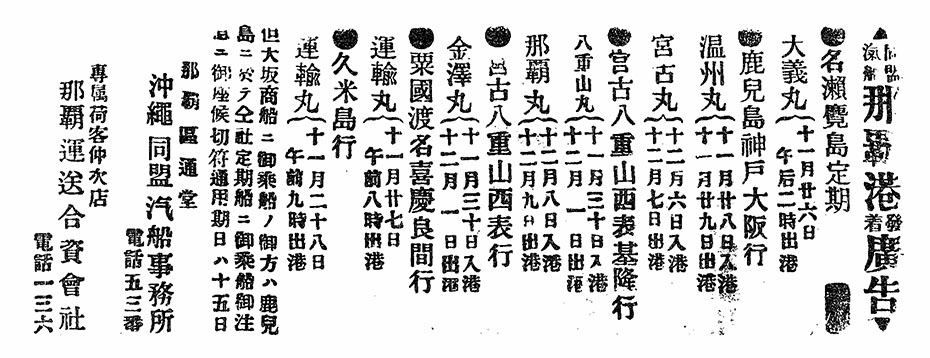 同盟汽船那覇港発着廣告
●名瀬覽島定期
大義丸 十一月廿六日 午后二時出港
●鹿兒島神戸大阪行
温州丸 十一月廿八日入港 十一月廿九日出港
宮古丸 十二月六日入港 十二月七日出港
●宮古八重山西表基隆行
八重山丸 十一月三十日入港 十二月一日出港
那覇丸 十二月八日入港 十二月九日出港
●宮古八重山西表行
金澤丸 十一月三十日入港 十二月一日出港
●粟國渡名喜慶良間行
運輸丸 十一月廿七日 午前八時出港
●久米島行
運輸丸 十一月二十八日 午前九時出港
但大坂商船ニ御乘船ノ御方ハ鹿兒
島ニ於テ仝社定期船ニ御乘船御注
意ニ御座候切符通用期日ハ十五日
那覇區通堂
沖繩同盟汽船事務所
電話五三番
專属荷客仲次店
那覇運送合資會社
電話一三六